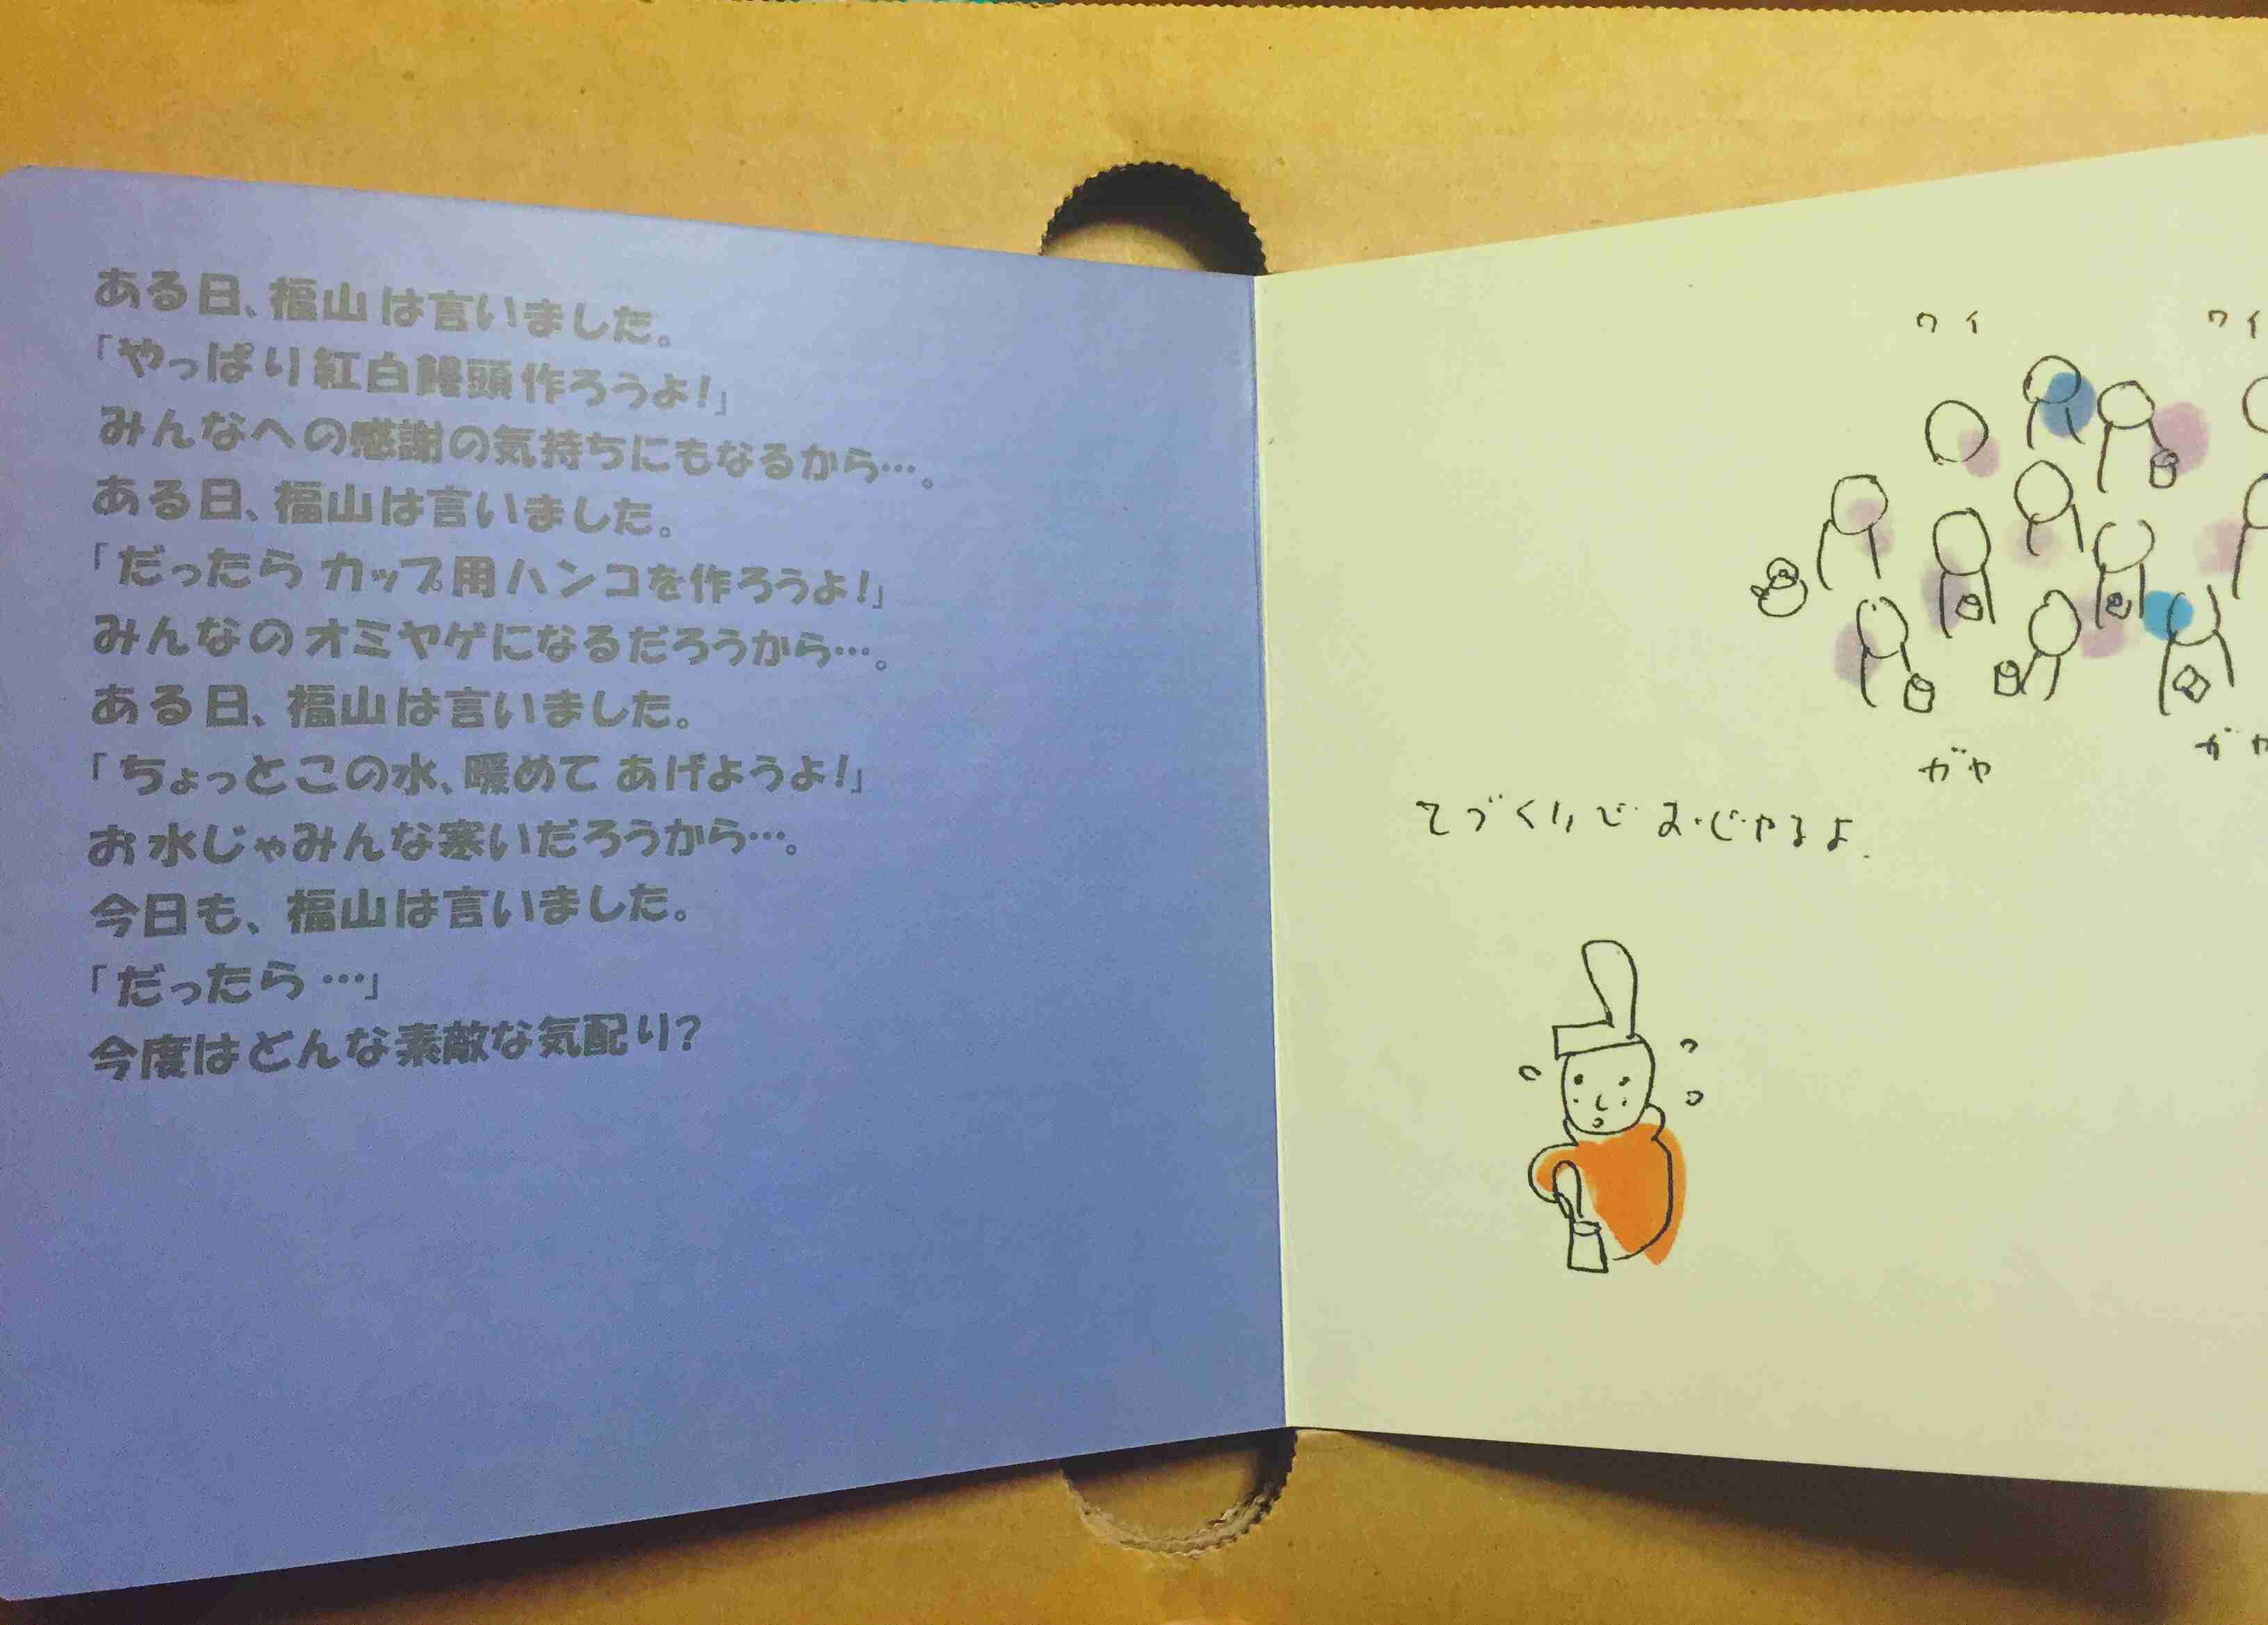 ある日、福山は言いました。
「やっぱり紅白饅頭作ろうよ!」
みんなへの感謝の気持ちにもなるから…。
ある日、福山は言いました。
「だったらカップ用ハンコを作ろうよ!」
みんなのオミヤゲになるだろうから…。
ある日、福山は言いました。
「ちょっとこの水、暖めてあげようよ!」
お水じゃみんな寒いだろうから…。
今日も、福山は言いました。
「だったら…」
今度はどんな素敵な気配り?
ワイ ワイ
ガヤ ガヤ
てづくりでおじゃるよ.